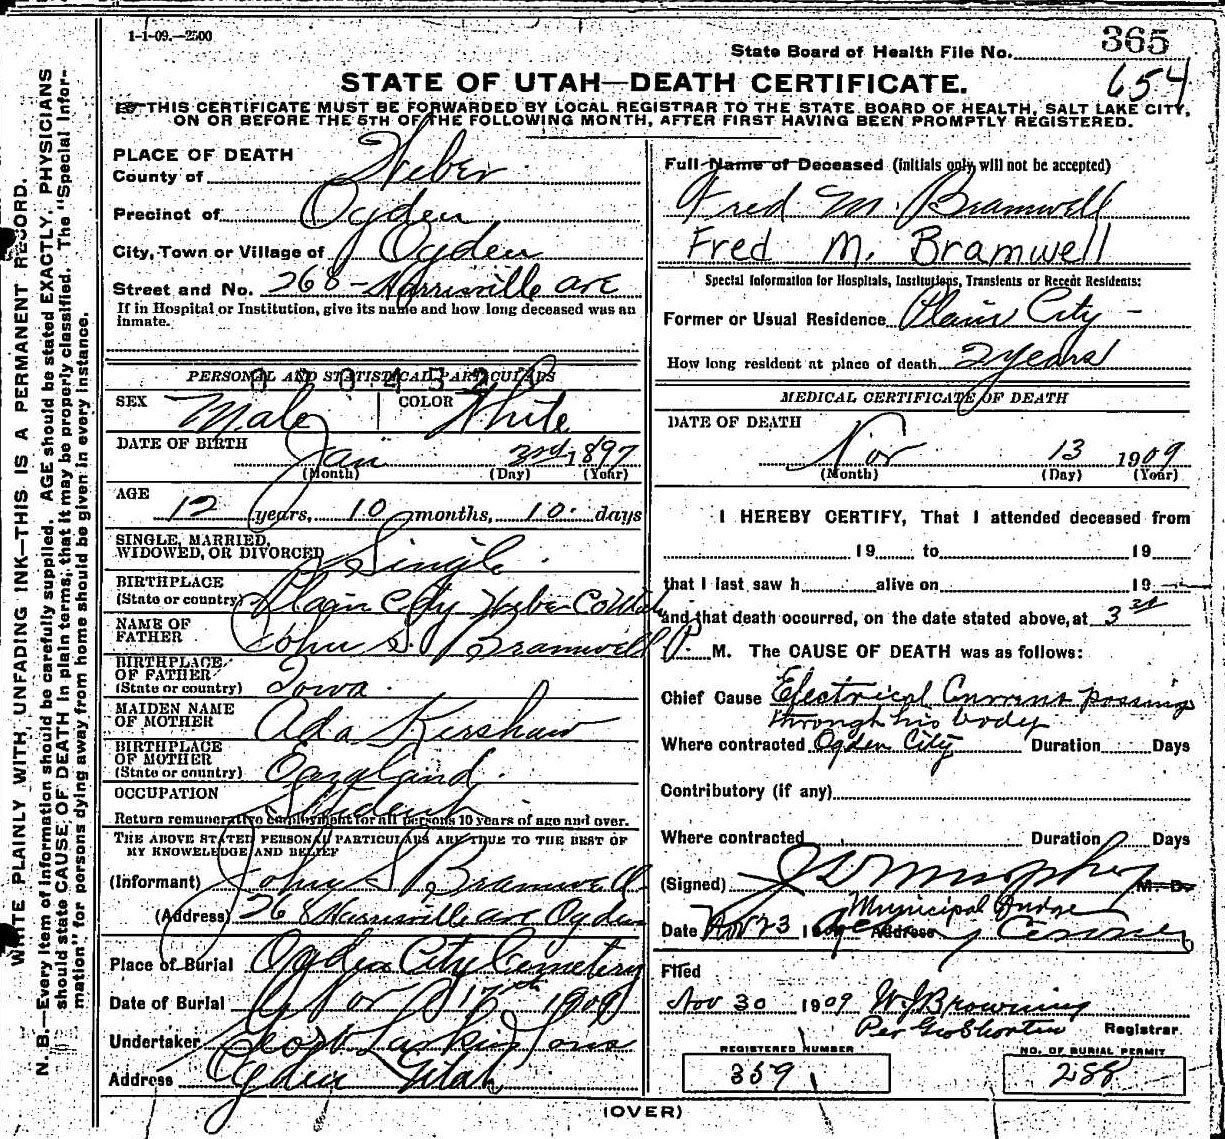 1-1-09.—2500
State Board of Health File No. 365
654
STATE OF UTAH—DEATH CERTIFICATE.
THIS CERTIFICATE MUST BE FORWARDED BY LOCAL REGISTRAR TO THE STATE BOARD OF HEALTH, SALT LAKE CITY,
ON OR BEFORE THE 5TH OF THE FOLLOWING MONTH, AFTER FIRST HAVING BEEN PROMPTLY REGISTERED.
WRITE PLAINLY WITH UNFADING INK—THIS IS A PERMANENT RECORD.
N. B.—Every item of information should be carefully supplied. AGE should be stated EXACTLY. PHYSICIANS
should state CAUSE OF DEATH in plain terms, that it may be properly classified. The "Special Infor-
mation" for persons dying away from home should be given in every instance.
PLACE OF DEATH
County of Weber
Precinct of Ogden
City, Town or Village of Ogden
Street and No. 268 - Harrisville ave
If in Hospital or Institution, give its name and how long deceased was an
inmate.
PERSONAL AND STATISTICAL PARTICULARS
SEX Male COLOR White
DATE OF BIRTH
Jan 3rd 1897
(Month) (Day) (Year)
AGE
12 years, 10 months, 10 days
SINGLE, MARRIED,
WIDOWED, OR DIVORCED Single
BIRTHPLACE
(State or country) Plain City Weber Co Utah
NAME OF
FATHER John S. Bramwell
BIRTHPLACE
OF FATHER
(State or country) Iowa
MAIDEN NAME
OF MOTHER Ada Kershaw
BIRTHPLACE
OF MOTHER
(State or country) England
OCCUPATION Student
Return remunerative employment for all persons 10 years of age and over.
THE ABOVE STATED PERSONAL PARTICULARS ARE TRUE TO THE BEST OF
MY KNOWLEDGE AND BELIEF
(Informant) John S Bramwell
(Address) 268 Harrisville ave Ogden
Place of Burial Ogden City Cemetery
Date of Burial Nov 17th 1909
Undertaker Larkin Sons
Address Ogden Utah
Full Name of Deceased (Initials only will not be accepted)
Fred M. Bramwell
Fred M. Bramwell
Special Information for Hospitals, Institutions, Transients or Recent Residents:
Former or Usual Residence Plain City -
How long resident at place of death 2 years
MEDICAL CERTIFICATE OF DEATH
DATE OF DEATH
Nov 13 1909
(Month) (Day) (Year)
I HEREBY CERTIFY, That I attended deceased from
19 to 19
that I last saw h alive on 19
and that death occurred, on the date stated above, at 3
P. M. The CAUSE OF DEATH was as follows:
Chief Cause Electrical Current passing
through his body
Where contracted Ogden City Duration Days
Contributory (if any)
Where contracted Duration Days
(Signed) J D Murphy M. D.
Municipal Judge
Date Nov 23 190 Address Coroner
Filed
Nov 30 1909 W J Browning
Per Geo Shorten Registrar
REGISTERED NUMBER
359
NO. OF BURIAL PERMIT
288
(OVER)